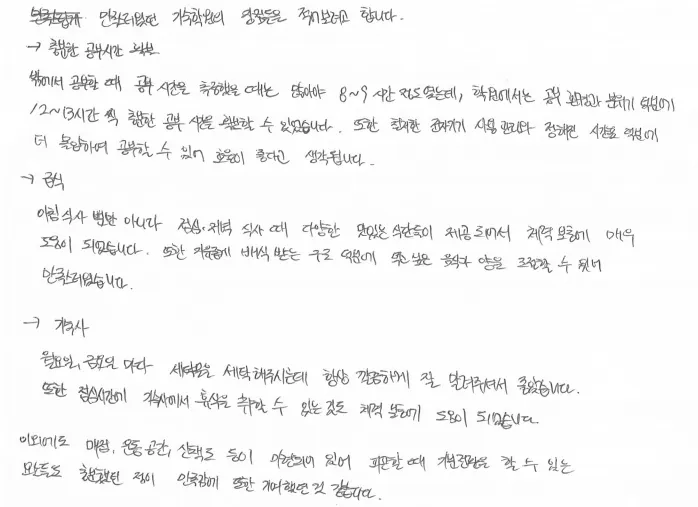 만족스러웠던 기숙학원의 장점들을 적어보려고 합니다.
→ 충분한 공부시간 확보
밖에서 공부할 때 공부 시간을 측정했을 때는 많아야 8~9시간 정도였는데, 학원에서는 공부 환경과 분위기 덕분에
12~13시간 씩 충분한 공부 시간을 확보할 수 있었습니다. 또한 철저한 전자기기 사용 관리와 정해진 시간표 덕분에
더 몰입하여 공부할 수 있어 효율이 좋다고 생각됩니다.
→ 급식
아침식사 뿐만 아니라 점심·저녁 식사 때 다양한 맛있는 식단들이 제공되어서 체력 보충에 매우
도움이 되었습니다. 또한 자율적으로 배식 받는 구조 덕분에 먹고 싶은 음식과 양을 조절할 수 있어
만족스러웠습니다.
→ 기숙사
월요일, 금요일 마다 세탁물을 세탁해주시는데 항상 깔끔하게 잘 말려주셔서 좋았습니다.
또한 점심시간에 기숙사에서 휴식을 취할 수 있는 것도 체력 보충에 도움이 되었습니다.
이외에도 매점, 운동 공간, 산책로 등이 마련되어 있어 피곤할 때 기분전환을 할 수 있는
요소들도 충분했던 점이 만족감에 또한 기여했던 것 같습니다.